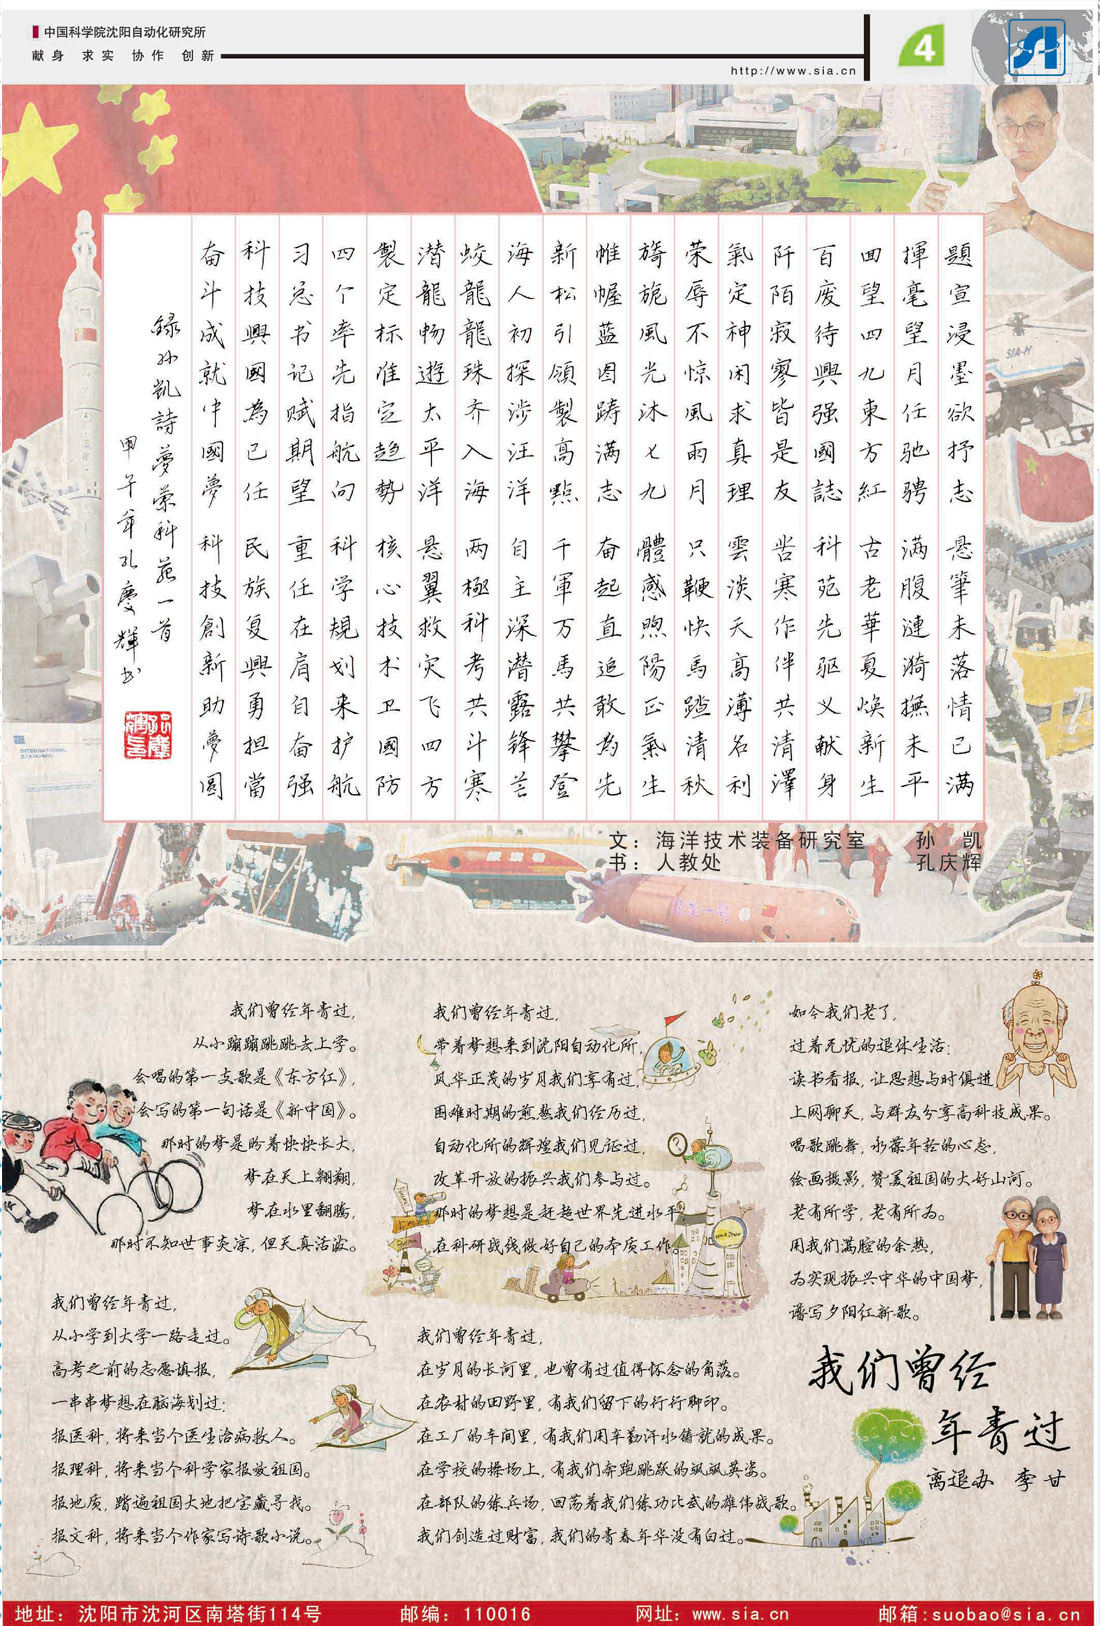 中国科学院沈阳自动化研究所
献身 求实 协作 创新
http://www.sia.cn
4
題宣浸墨欲抒志 悬筆未落情已满
揮毫望月任驰骋 满腹涟漪撫未平
回望四九東方紅 古老華夏焕新生
百废待興强國誌 科苑先驱义献身
阡陌寂寥皆是友 苦寒作伴共清澤
氣定神闲求真理 雲淡天高薄名利
荣辱不惊風雨月 只鞭快馬踏清秋
旖旎風光沐七九 體感煦陽正氣生
帷幄蓝图踌满志 奋起直追敢为先
新松引領製高點 千軍万馬共攀登
海人初探涉汪洋 自主深潜露锋芒
蛟龍龍珠齐入海 两極科考共斗寒
潜龍畅遊太平洋 悬翼救灾飞四方
製定标准定趋勢 核心技术卫國防
四个率先指航向 科学規划来护航
习总书记赋期望 重任在肩自奋强
科技興國為己任 民族复興勇担當
奋斗成就中國夢 科技創新助夢圆
録孙凯詩夢萦科苑一首
甲午年孔慶輝书
文：海洋技术装备研究室 孙 凯
书：人教处 孔庆辉
我们曾经年青过，
从小蹦蹦跳跳去上学。
会唱的第一支歌是《东方红》，
会写的第一句话是《新中国》。
那时的梦是盼着快快长大，
梦在天上翱翔，
梦在水里翻腾，
那时不知世事炎凉，但天真活泼。
我们曾经年青过，
从小学到大学一路走过。
高考之前的志愿填报，
一串串梦想在脑海划过：
报医科，将来当个医生治病救人。
报理科，将来当个科学家报效祖国。
报地质，踏遍祖国大地把宝藏寻找。
报文科，将来当个作家写诗歌小说。
我们曾经年青过，
带着梦想来到沈阳自动化所，
风华正茂的岁月我们享有过，
困难时期的煎熬我们经历过，
自动化所的辉煌我们见证过，
改革开放的振兴我们参与过。
那时的梦想是赶超世界先进水平，
在科研战线做好自己的本质工作。
我们曾经年青过，
在岁月的长河里，也曾有过值得怀念的角落。
在农村的田野里，有我们留下的行行脚印。
在工厂的车间里，有我们用辛勤汗水铸就的成果。
在学校的操场上，有我们奔跑跳跃的飒飒英姿。
在部队的练兵场，回荡着我们练功比武的雄伟战歌。
我们创造过财富，我们的青春年华没有白过。
如今我们老了，
过着无忧的退休生活：
读书看报，让思想与时俱进
上网聊天，与群友分享高科技成果。
唱歌跳舞，永葆年轻的心态，
绘画摄影，赞美祖国的大好山河。
老有所学，老有所为。
用我们满腔的余热，
为实现振兴中华的中国梦，
谱写夕阳红新歌。
我们曾经
年青过
离退办 李甘
地址：沈阳市沈河区南塔街114号 邮编：110016 网址：www.sia.cn 邮箱:suobao@sia.cn